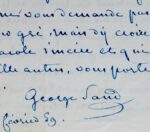 vous demande par
gré, mais
parole sincère et qui
autres, vous porte
George Sand
février 59.